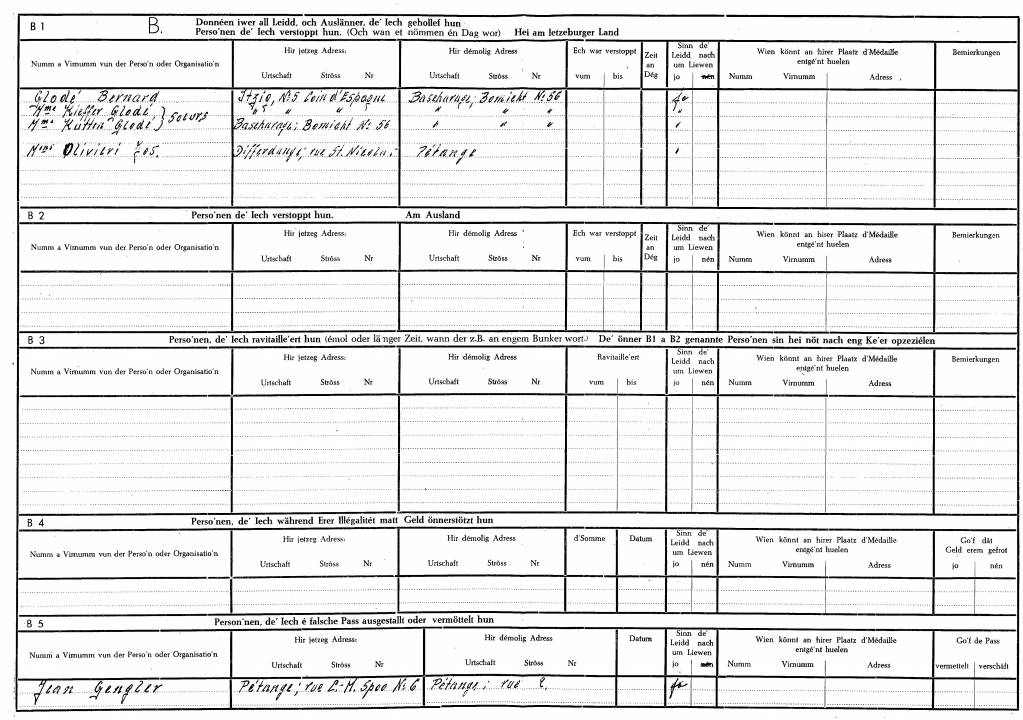 B 1 B. Donnéen iwer all Leidd, och Auslänner, de' Iech gehollef hun
Perso'nen de' Iech verstoppt hun. (Och wan et nömmen én Dag wor) Hei am letzeburger Land
Numm a Virnumm vun der Perso'n oder Organisatio'n Hir jetzeg Adress: Hir démolig Adress Ech war verstoppt Zeit an Dég Sinn de' Leidd nach um Liewen Wien könnt an hirer Plaatz d'Médaille entgé'nt huelen Bemierkungen
Urtschaft Ströss Nr Urtschaft Ströss Nr vum bis jo nén Numm Virnumm Adress
Glodé Bernard Itzig, N:5 Coin d'Espagne Bascharage; Bomicht N: 56 jo
Mme Kieffer Glodé } soeurs " 5 " " " " " "
Mme Kutten Glodé } Bascharage; Bomicht N: 56 " " " "
Mons Olivieri Jos. Differdange; rue St. Nicolas Pétange "
B 2 Perso'nen de' Iech verstoppt hun. Am Ausland
Numm a Virnumm vun der Perso'n oder Organisatio'n Hir jetzeg Adress: Hir démolig Adress Ech war verstoppt Zeit an Dég Sinn de' Leidd nach um Liewen Wien könnt an hirer Plaatz d'Médaille entgé'nt huelen Bemierkungen
Urtschaft Ströss Nr Urtschaft Ströss Nr vum bis jo nén Numm Virnumm Adress
B 3 Perso'nen, de' Iech ravitaille'ert hun (émol oder länger Zeit, wann der z.B. an engem Bunker wort.) De' önner B1 a B2 genannte Perso'nen sin hei nöt nach eng Ke'er opzeziélen
Numm a Virnumm vun der Perso'n oder Organisatio'n Hir jetzeg Adress: Hir démolig Adress Ravitaille'ert Sinn de' Leidd nach um Liewen Wien könnt an hirer Plaatz d'Médaille entgé'nt huelen Bemierkungen
Urtschaft Ströss Nr Urtschaft Ströss Nr vum bis jo nén Numm Virnumm Adress
B 4 Perso'nen, de' Iech während Erer Illégalitét matt Geld önnerstötzt hun
Numm a Virnumm vun der Perso'n oder Organisatio'n Hir jetzeg Adress: Hir démolig Adress d'Somme Datum Sinn de' Leidd nach um Liewen Wien könnt an hirer Plaatz d'Médaille entgé'nt huelen Go'f dât Geld erem gefrot
Urtschaft Ströss Nr Urtschaft Ströss Nr jo nén Numm Virnumm Adress jo nén
B 5 Person'nen, de' Iech é falsche Pass ausgestallt oder vermöttelt hun
Numm a Virnumm vun der Perso'n oder Organisatio'n Hir jetzeg Adress: Hir démolig Adress Datum Sinn de' Leidd nach um Liewen Wien könnt an hirer Plaatz d'Médaille entgé'nt huelen Go'f de Pass
Urtschaft Ströss Nr Urtschaft Ströss Nr jo nén Numm Virnumm Adress vermettelt verschäft
Jean Gengler Pétange; rue C.-M. Spoo N: 6 Pétange; rue jo